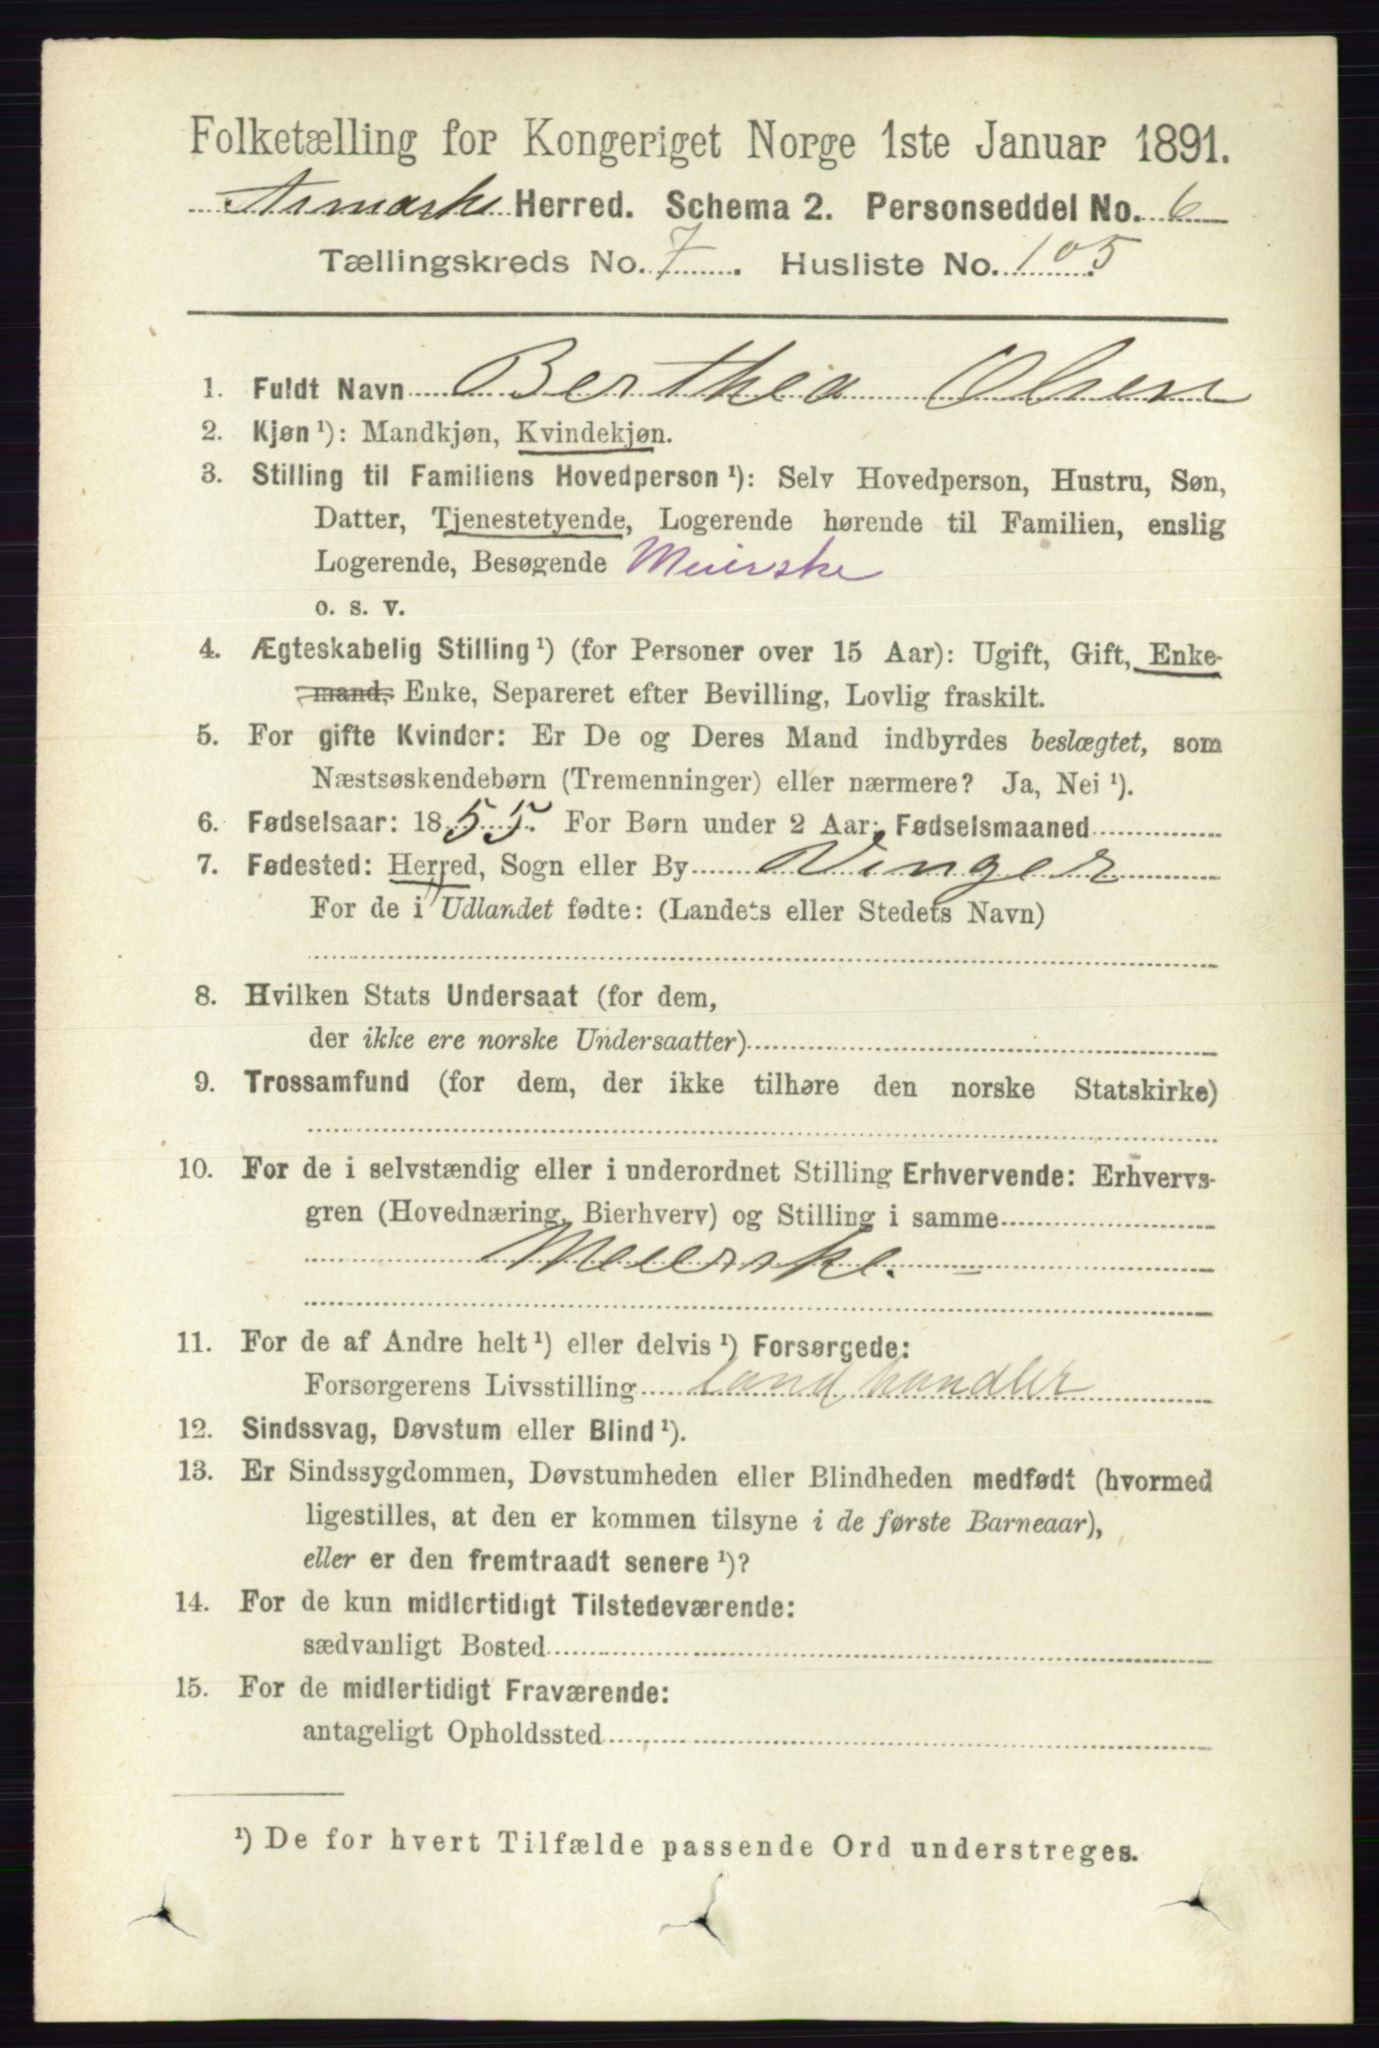 Folketælling for Kongeriget Norge 1ste Januar 1891.
Aremark Herred. Schema 2. Personseddel No. 6
Tællingskreds No. 7. Husliste No. 105.
1. Fuldt Navn Berthea Olsen
2. Kjøn ¹): Mandkjøn, Kvindekjøn.
3. Stilling til Familiens Hovedperson ¹): Selv Hovedperson, Hustru, Søn,
Datter, Tjenestetyende, Logerende hørende til Familien, enslig
Logerende, Besøgende Meierske
o. s. v.
4. Ægteskabelig Stilling ¹) (for Personer over 15 Aar): Ugift, Gift, Enke-
mand, Enke, Separeret efter Bevilling, Lovlig fraskilt.
5. For gifte Kvinder: Er De og Deres Mand indbyrdes beslægtet, som
Næstsøskendebørn (Tremenninger) eller nærmere? Ja, Nei ¹).
6. Fødselsaar: 1855. For Børn under 2 Aar: Fødselsmaaned
7. Fødested: Herred, Sogn eller By Vinger
For de i Udlandet fødte: (Landets eller Stedets Navn)
8. Hvilken Stats Undersaat (for dem,
der ikke ere norske Undersaatter)
9. Trossamfund (for dem, der ikke tilhøre den norske Statskirke)
10. For de i selvstændig eller i underordnet Stilling Erhvervende: Erhvervs-
gren (Hovednæring, Bierhverv) og Stilling i samme
Meierske.
11. For de af Andre helt ¹) eller delvis ¹) Forsørgede:
Forsørgerens Livsstilling Landhandler
12. Sindssvag, Døvstum eller Blind ¹).
13. Er Sindssygdommen, Døvstumheden eller Blindheden medfødt (hvormed
ligestilles, at den er kommen tilsyne i de første Barneaar),
eller er den fremtraadt senere ¹)?
14. For de kun midlertidigt Tilstedeværende:
sædvanligt Bosted
15. For de midlertidigt Fraværende:
antageligt Opholdssted
¹) De for hvert Tilfælde passende Ord understreges.